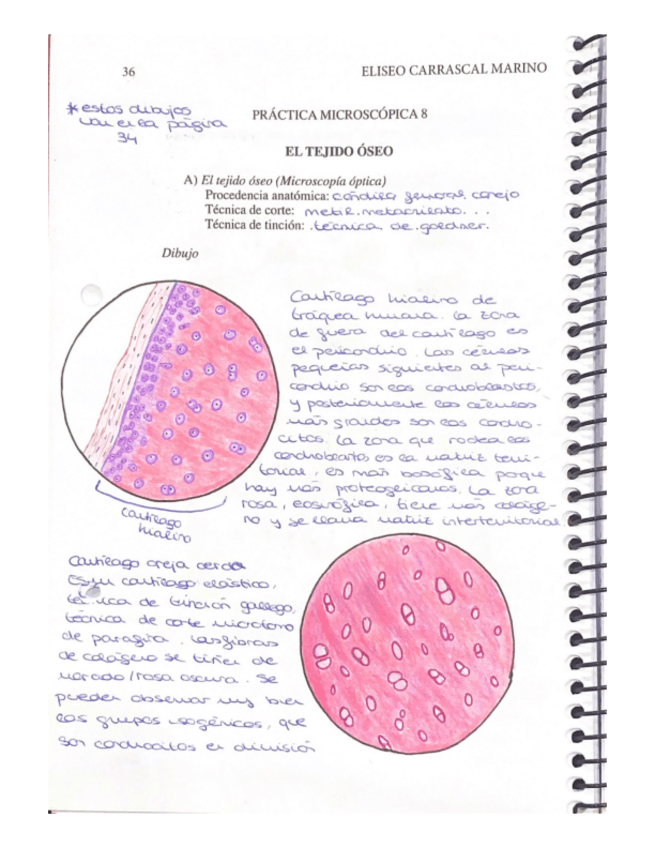 36
ELISEO CARRASCAL MARINO
* estos dibujos
van en la página
34
PRÁCTICA MICROSCÓPICA 8
EL TEJIDO ÓSEO
A) El tejido óseo (Microscopía óptica)
Procedencia anatómica: cóndilo femoral, conejo
Técnica de corte: metil.metacrilato...
Técnica de tinción: técnica de goldner.
Dibujo
Cartílago hialino de
tráquea humana. La zona
de fuera del cartílago es
el pericondrio. Las células
pequeñas siguientes al peri-
condrio son los condroblastos,
y posteriormente las células
más grandes son los condro-
citos. La zona que rodea los
condroblastos es la matriz terri-
torial, es más basófila porque
hay más proteoglicanos. La zona
rosa, eosinófila, tiene más coláge-
no y se llama matriz interterritorial
cartílago
hialino
Cartílago oreja cerdo
Es un cartílago elástico,
técnica de tinción gallego,
técnica de corte microtomo
de parafina. Las fibras
de colágeno se tiñen de
morado/rosa oscuro. Se
pueden observar muy bien
los grupos isogénicos, que
son condrocitos en división